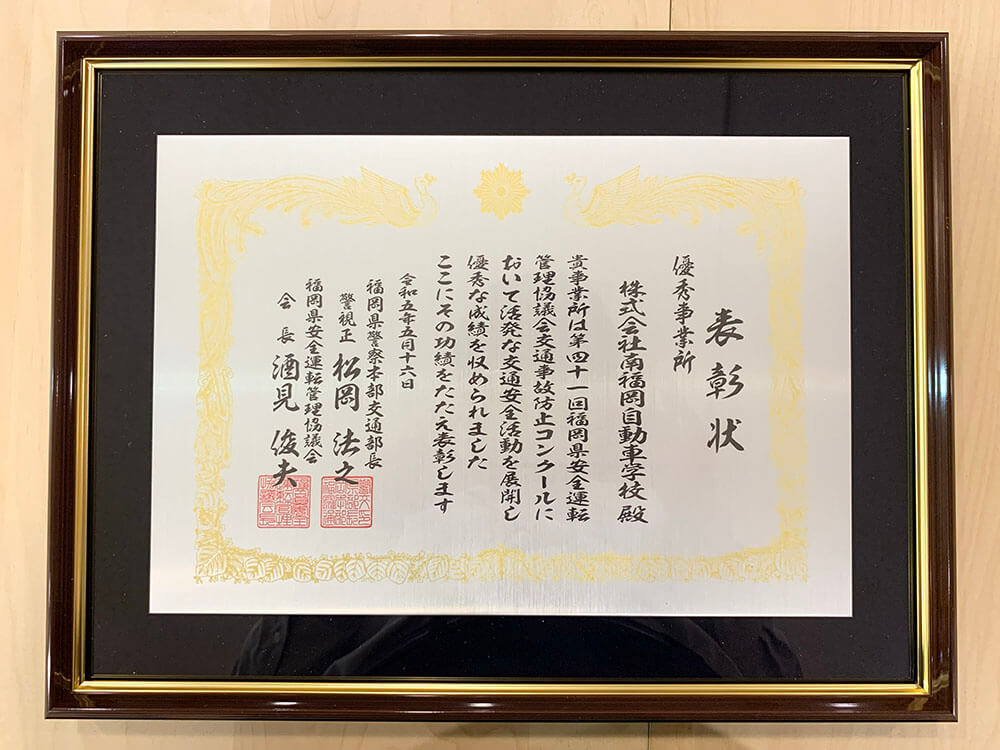 表彰状
優秀事業所
株式会社南福岡自動車学校殿
貴事業所は第四十一回福岡県安全運転
管理協議会交通事故防止コンクールに
おいて活発な交通安全活動を展開し
優秀な成績を収められました
ここにその功績をたたえ表彰します
令和五年五月十六日
福岡県警察本部交通部長
警視正 松岡 法之
福岡県安全運転管理協議会
会長 酒見 俊夫